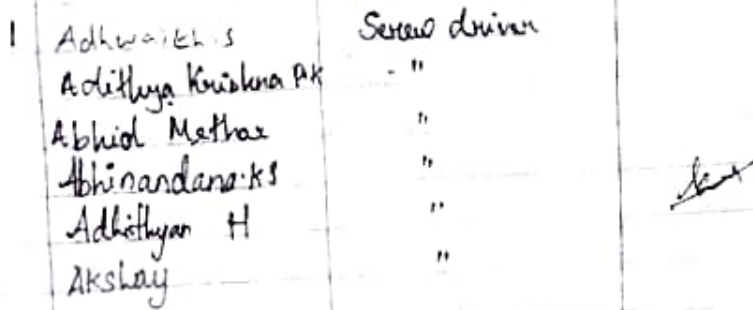 1 Adhwaith s Screw driver
Adithya Krishna PK - "
Abhid Methar "
Abhinandana.KS "
Adhithyan H "
Akshay "